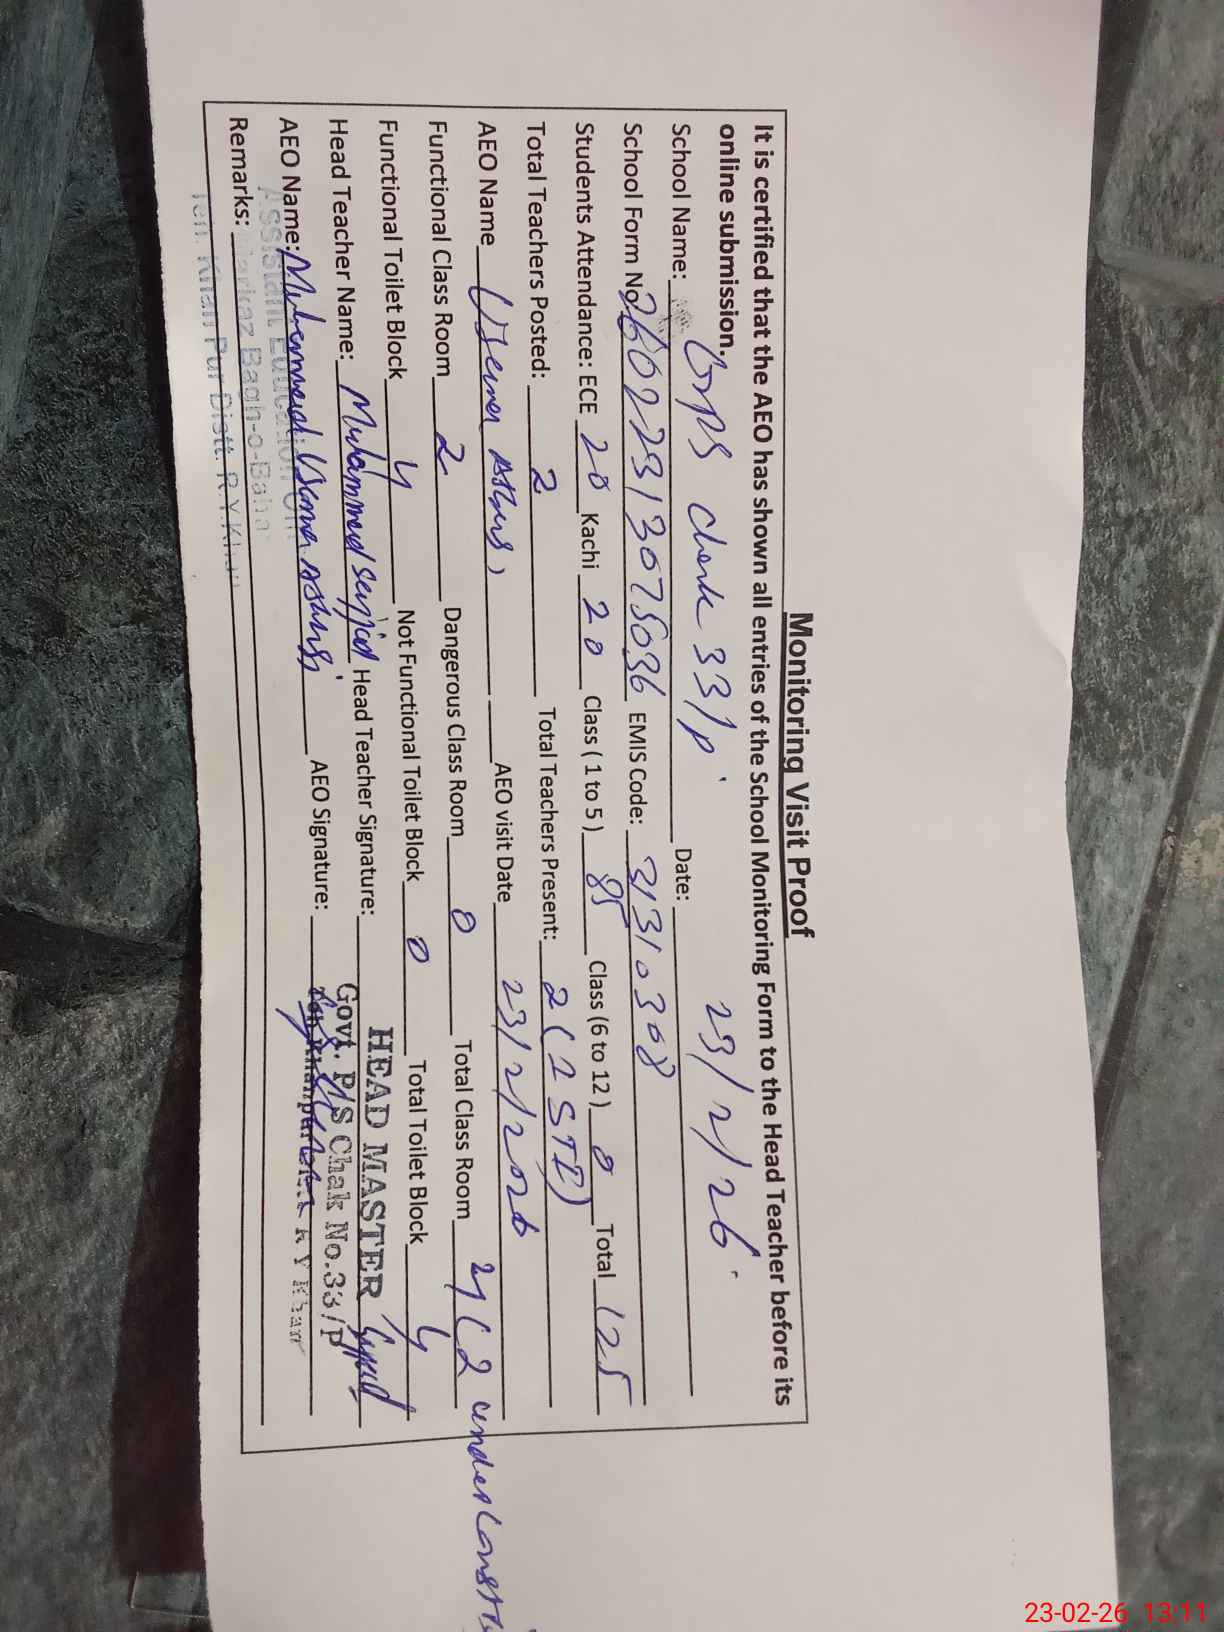 Monitoring Visit Proof
It is certified that the AEO has shown all entries of the School Monitoring Form to the Head Teacher before its
online submission.
School Name: GPS Chak 33/p Date: 23/2/26
School Form No 26022313075036 EMIS Code: 31310308
Students Attendance: ECE 20 Kachi 20 Class ( 1 to 5 ) 85 Class (6 to 12 ) 0 Total 125
Total Teachers Posted: 2 Total Teachers Present: 2 (
AEO Name AEO visit Date 23/2/2026
Functional Class Room 2 Dangerous Class Room 0 Total Class Room 4 (2 under
Functional Toilet Block 4 Not Functional Toilet Block 0 Total Toilet Block 4
Head Teacher Name: Muhammad Head Teacher Signature:
HEAD MASTER
Govt. P/S Chak No.33/P
AEO Name: Muhammad AEO Signature:
R Y Khan
Assistant Education
Remarks:
Markaz Bagh-o-Bahar
Teh. Khan Pur Distt. R.Y.Khan
23-02-26 13:11